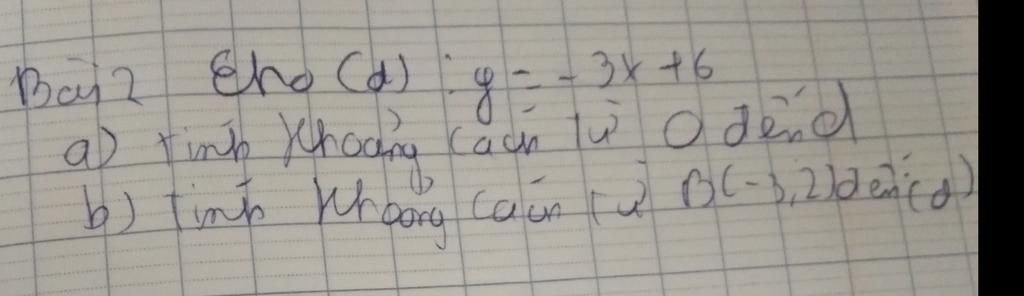 Bài 2 Cho (d) : y = - 3x + 6
a) Tính khoảng cách từ O đến d
b) Tính khoảng cách từ B(-3,2) đến (d)